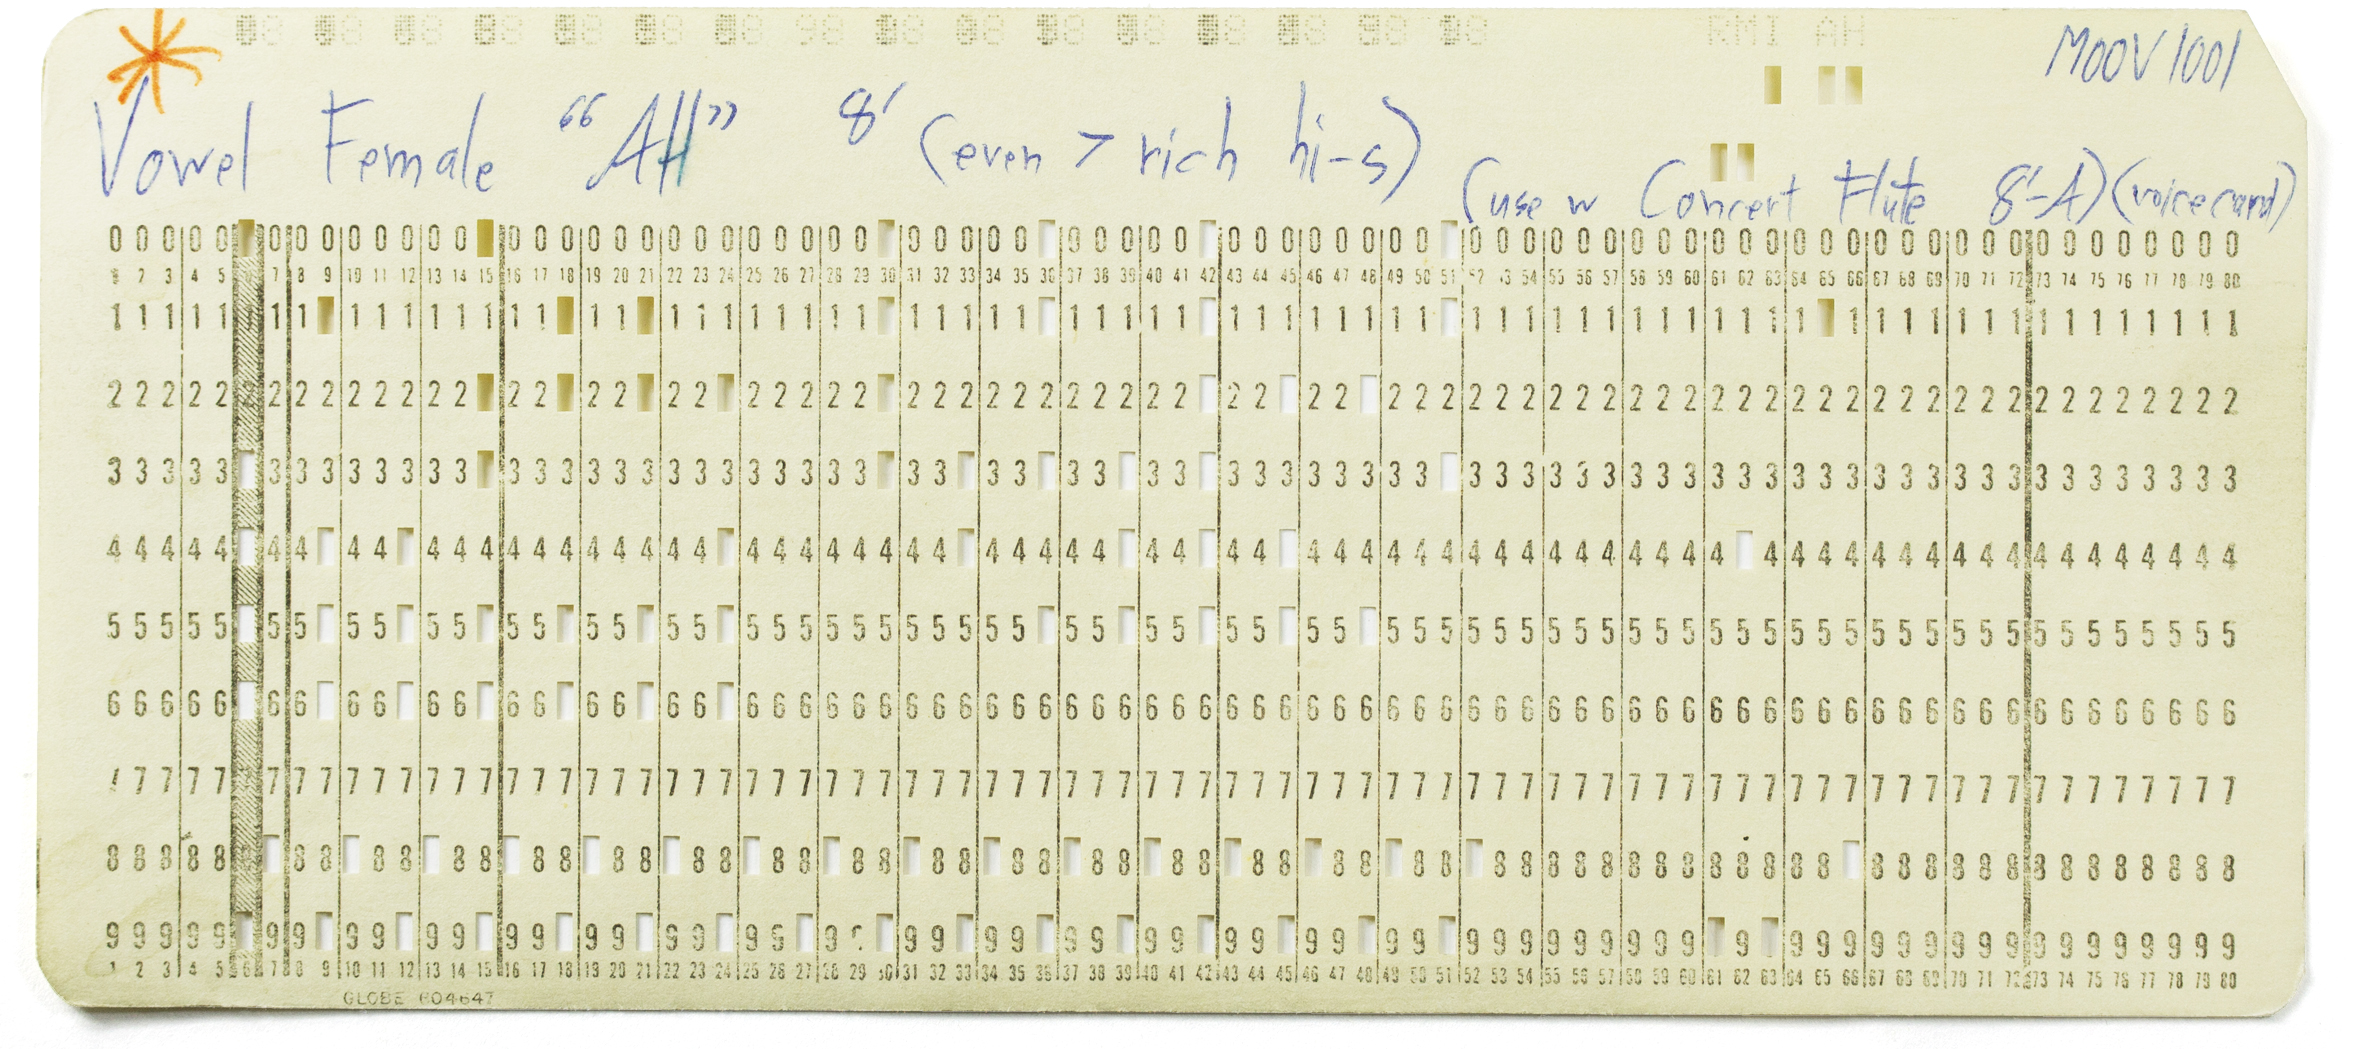 RMI AH
MOOV1001
Vowel Female "AH" 8' (even > rich hi-s)
(use w Concert Flute 8'-A) (voice card)
00000 00000000 00000000000000 00000 00000 00000000 00000000000000000000000000000
1 2 3 4 5 7 8 9 10 11 12 13 14 15 16 17 18 19 20 21 22 23 24 25 26 27 28 29 30 31 32 33 34 35 36 37 38 39 40 41 42 43 44 45 46 47 48 49 50 51 52 53 54 55 56 57 58 59 60 61 62 63 64 65 66 67 68 69 70 71 72 73 74 75 76 77 78 79 80
11111111 11111111 11 11111111 11111 11111 11111111 1111111111111 111111111111111
22222222222222 22 22 22 22222 22222222222 22 22 22222222222222222222222222222222
33333 33333333 33333333333333 33 33 33 33 33333333 33333333333333333333333333333
44444 44 44 44444444444 44444444 44444 44 44 4444444444444444 444444444444444444
55555 55 55 55 55 55 55 55555555555 55 55 55 55 55555555555555555555555555555555
66666 66 66 66 66 66 66 66666666666666666666666666666666666666666666666666666666
77777777777777777777777777777777777777777777777777777777777777777777777777777777
888888 88 88 88 88 88 88 88 88 88 88 88 88 88 88 88 8888888888888 88888888888888
99999 99 99 99 99 99 99 99 99 99 99 99 99 99 99 99 999999999 9 99999999999999999
1 2 3 4 5 6 7 8 9 10 11 12 13 14 15 16 17 18 19 20 21 22 23 24 25 26 27 28 29 30 31 32 33 34 35 36 37 38 39 40 41 42 43 44 45 46 47 48 49 50 51 52 53 54 55 56 57 58 59 60 61 62 63 64 65 66 67 68 69 70 71 72 73 74 75 76 77 78 79 80
GLOBE 604647